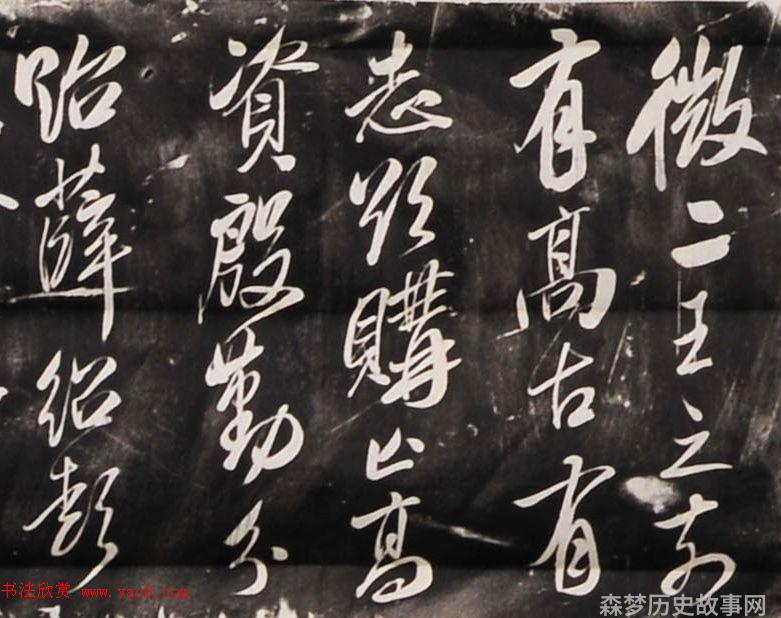 微二王之前
有高古有
志欲購高
資殷勤分
貽薛紹彭
书法欣赏 www.yac8.com
森梦历史故事网